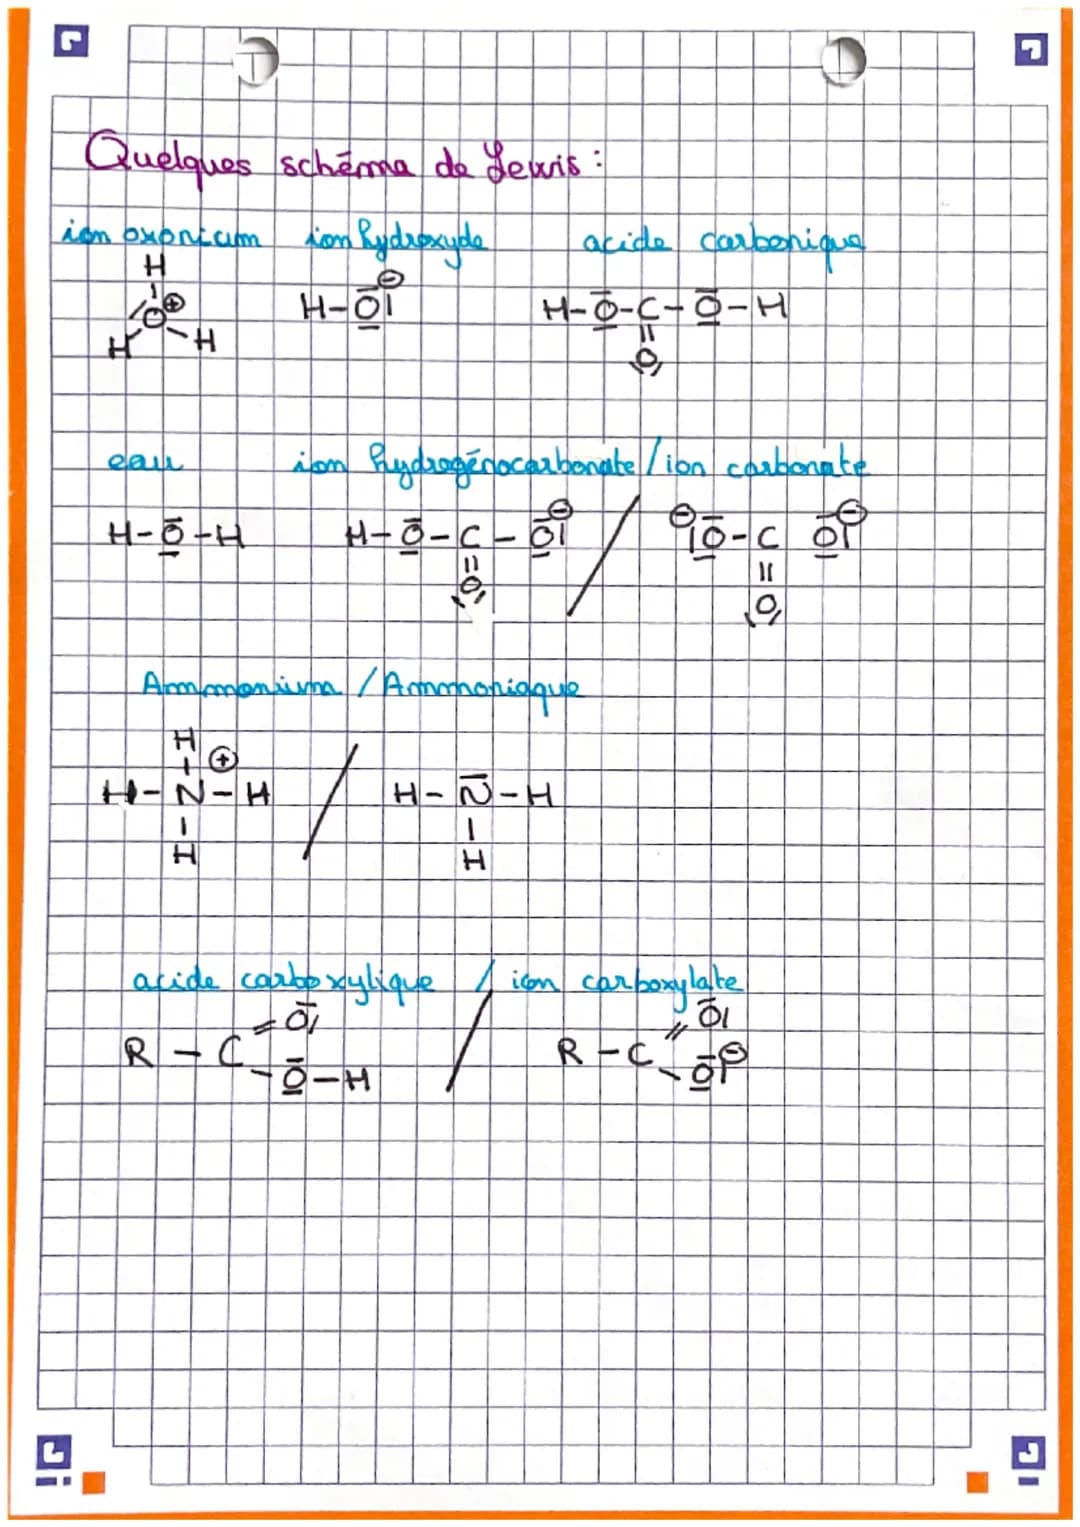 Quelques schéma de Lewis :
ion oxonium ion hydroxyde acide carbonique
H
O ⊕
H H
H-O ⊖
H-O-C-O-H
O
eau ion hydrogénocarbonate / ion carbonate
H-O-H
H-O-C-O ⊖
O
/
⊖ O-C O ⊖
O
Ammonium / Ammoniaque
H
⊕
H-N-H / H-N-H
H H
acide carboxylique / ion carboxylate
R-C = O
O-H
/
R-C = O
O ⊖